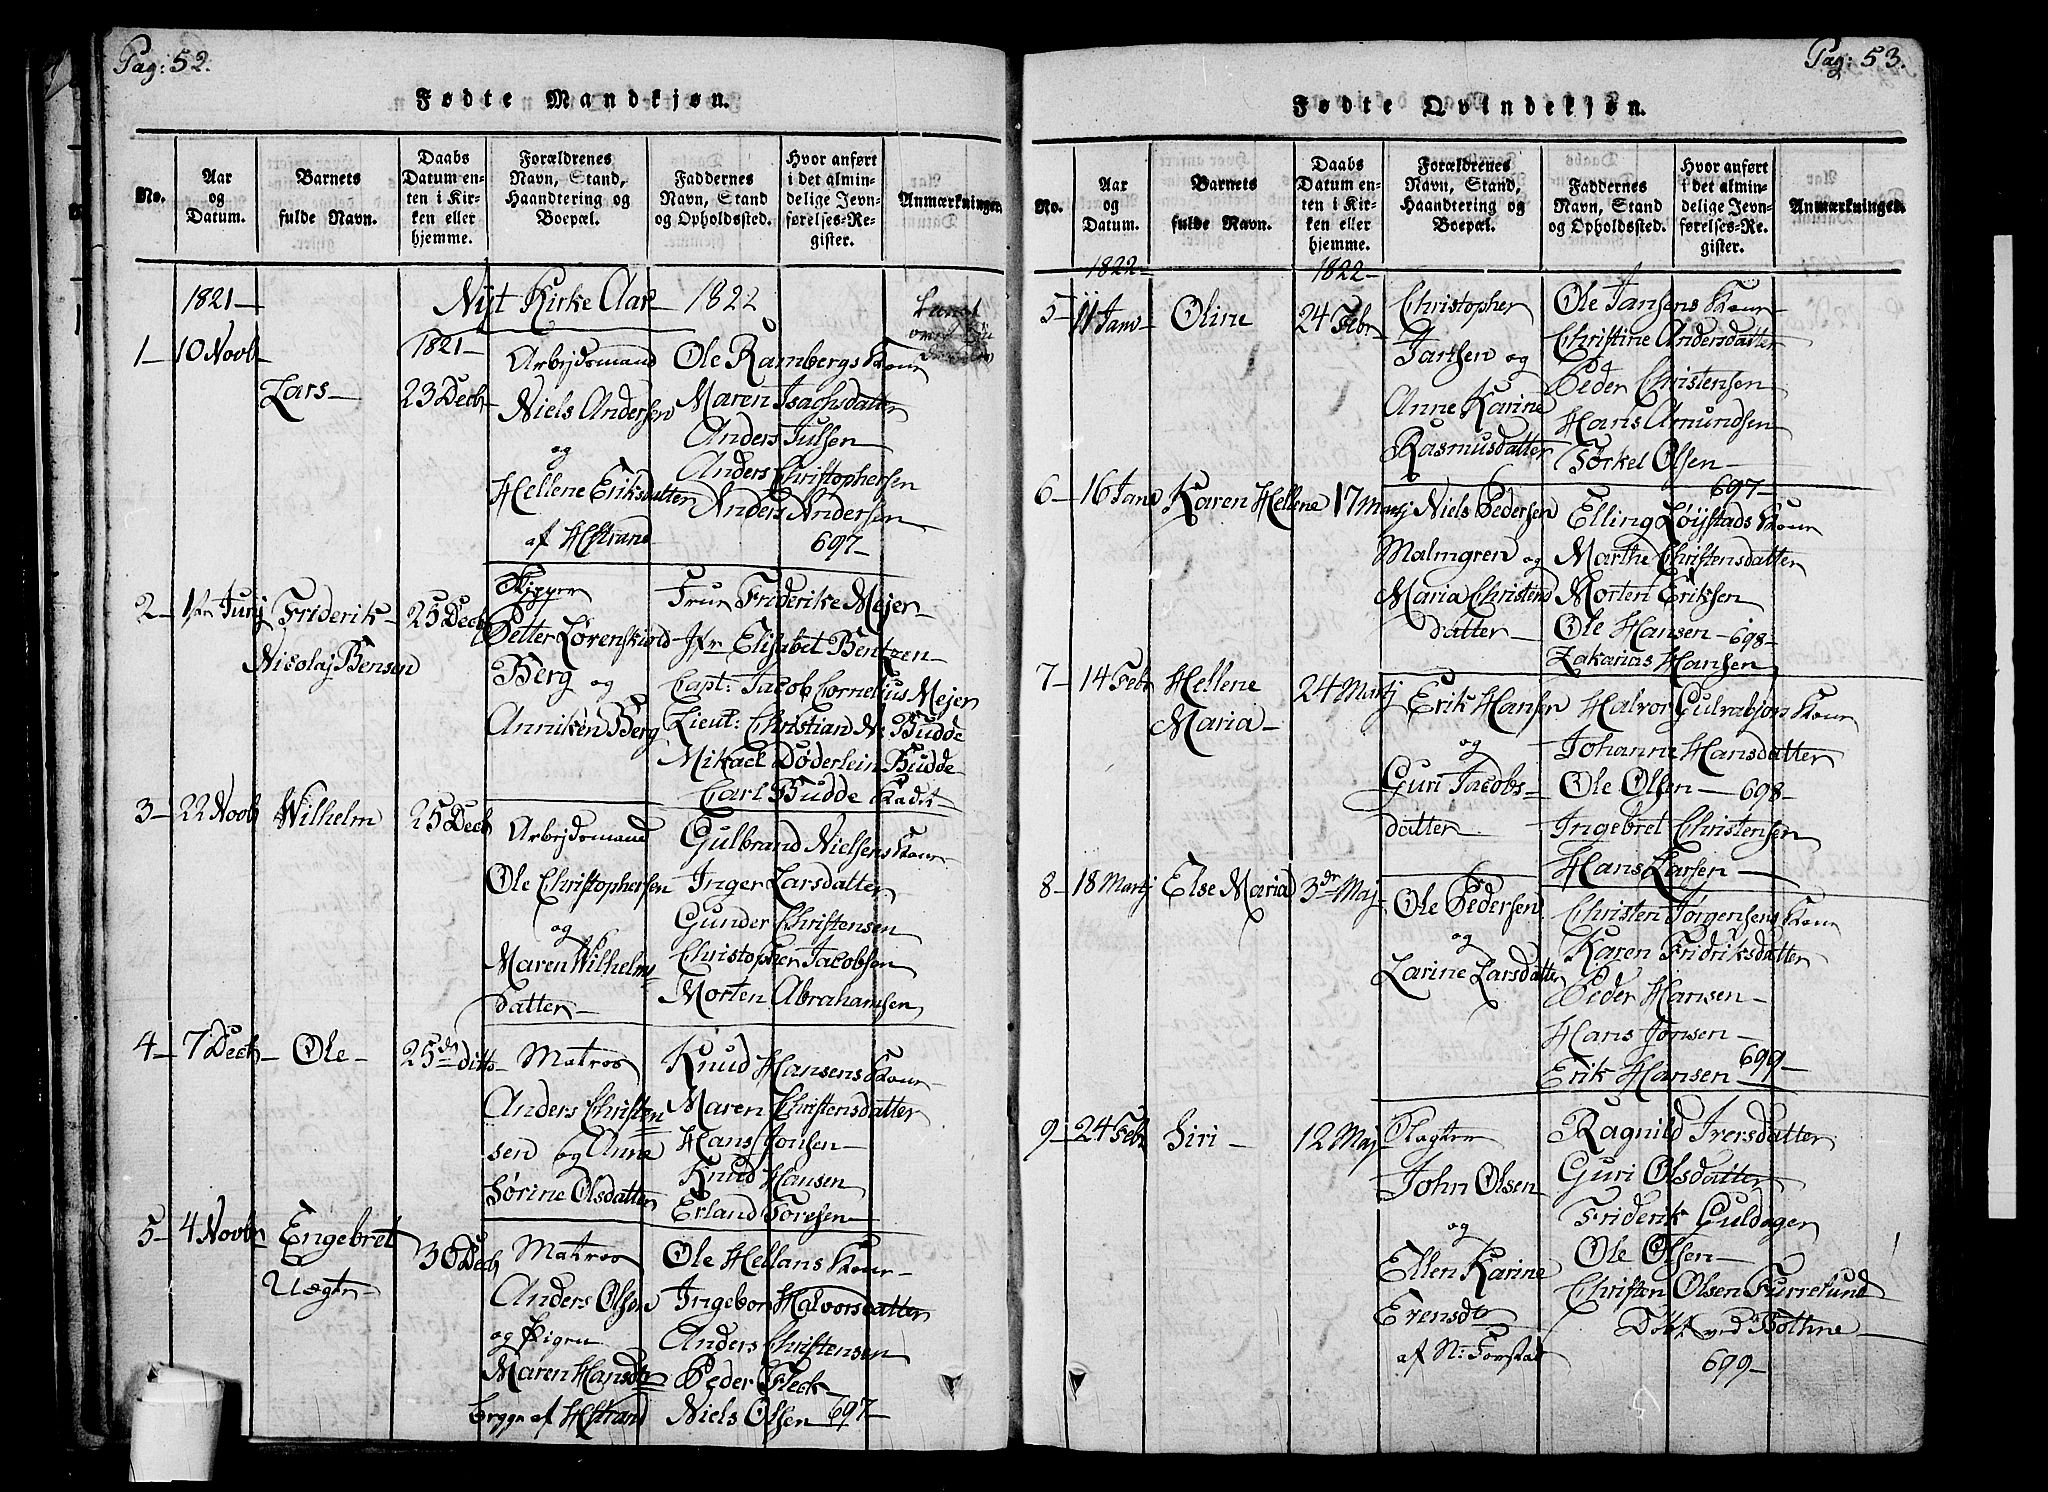 Pag: 52.
Fødte Mandkjøn.
No.
Aar
og
Datum.
Barnets
fulde Navn.
Daabs
Datum en-
ten i Kir-
ken eller
hjemme.
Forældrenes
Navn, Stand,
Haandtering og
Boepæl.
Faddernes
Navn, Stand
og Opholdssted.
Hvor anført
i det almin-
delige Jevn-
førelses-Re-
gister.
Anmærkninger.
1821
Nyt Kirke Aar 1822
1 10 Novb
Lars
1821
23 Decb
Arbejdsmand
Niels Andersen
og
Hellene Eriksdatter
af HStrand
Ole Rambergs Kone
Maren Isachsdatter
Anders Julsen
Anders Christophersen
Anders Andersen
697
2 1ste Junj
Friderik
Nicolaj Bensen
25 Decb
Skipper
Petter Lørenskiold
Berg og
Anniken Berg
Frue Friderike Mejer
Jfr Elisabet Bentzen
Capt: Jacob Cornelius Mejer
Lieut: Christian N: Budde
Mikael Døderlein Budde
Carl Budde Kadet
3 22 Novb
Wilhelm
25 Decb
Arbejdsmand
Ole Christophersen
og
Maren Wilhelms
datter
Gulbrand Nielsens Kone
Inger Larsdatter
Gunder Christensen
Christopher Jacobsen
Morten Abrahamsen
4 7 Decb
Ole
25de ditto
Matros
Anders Christen
sen og Anne
Sørine Olsdatter
Knud Hansens Kone
Maren Christensdatter
Hans Jonsen
Knud Hansen
Erland Toresen
5 4 Novb
Engebret
Uægte
30 Decb
Matros
Anders Olsen
og Pigen
Maren Hansdtr
begge af HStrand
Ole Hellans Kone
Ingebor Halvorsdatter
Anders Christensen
Peder Fleck
Niels Olsen 697
Pag: 53.
Fødte Qvindekjøn.
No.
Aar
og
Datum.
Barnets
fulde Navn.
Daabs
Datum en-
ten i Kir-
ken eller
hjemme.
Forældrenes
Navn, Stand,
Haandtering og
Boepæl.
Faddernes
Navn, Stand
og Opholdssted.
Hvor anført
i det almin-
delige Jevn-
førelses-Re-
gister.
Anmærkninger.
1822
1822
5 11 Jan
Oline
24 Febr
Christopher
og
Anne Karine
Rasmusdatter
Ole Jansens Kone
Christine Andersdatter
Peder Christensen
Hans Amundsen
Törkel Olsen
697
6 16 Jan
Karen Hellene
17 Martj
Niels Pedersen
Malmgren og
Maria Christens
datter
Elling Løijstads Kone
Marthe Christensdatter
Morten Eriksen
Ole Hansen 698
Zakarias Hansen
7 14 Febr
Hellene
Maria
24 Martj
Erik Hansen
og
Guri Jacobs
datter
Halvor Gulrabsøns Kone
Johanne Hansdatter
Ole Olsen 698
Ingebret Christensen
Hans Larsen
8 18 Martj
Else Maria
3dr Maj
Ole Pedersen
og
Larine Larsdatter
Christen Jørgensens Kone
Karen Fridriksdatter
Peder Hansen
Hans Jonsen
Erik Hansen 699
9 24 Febr
Siri
12 Maj
John Olsen
og
Ellen Karine
Erensdtr
af N: Forstad
Ragnild Iversdatter
Guri Olsdatter
Friderik Guldager
Ole Olsen
Christen Olsen Furrelund
Døbt ved Bothne
699